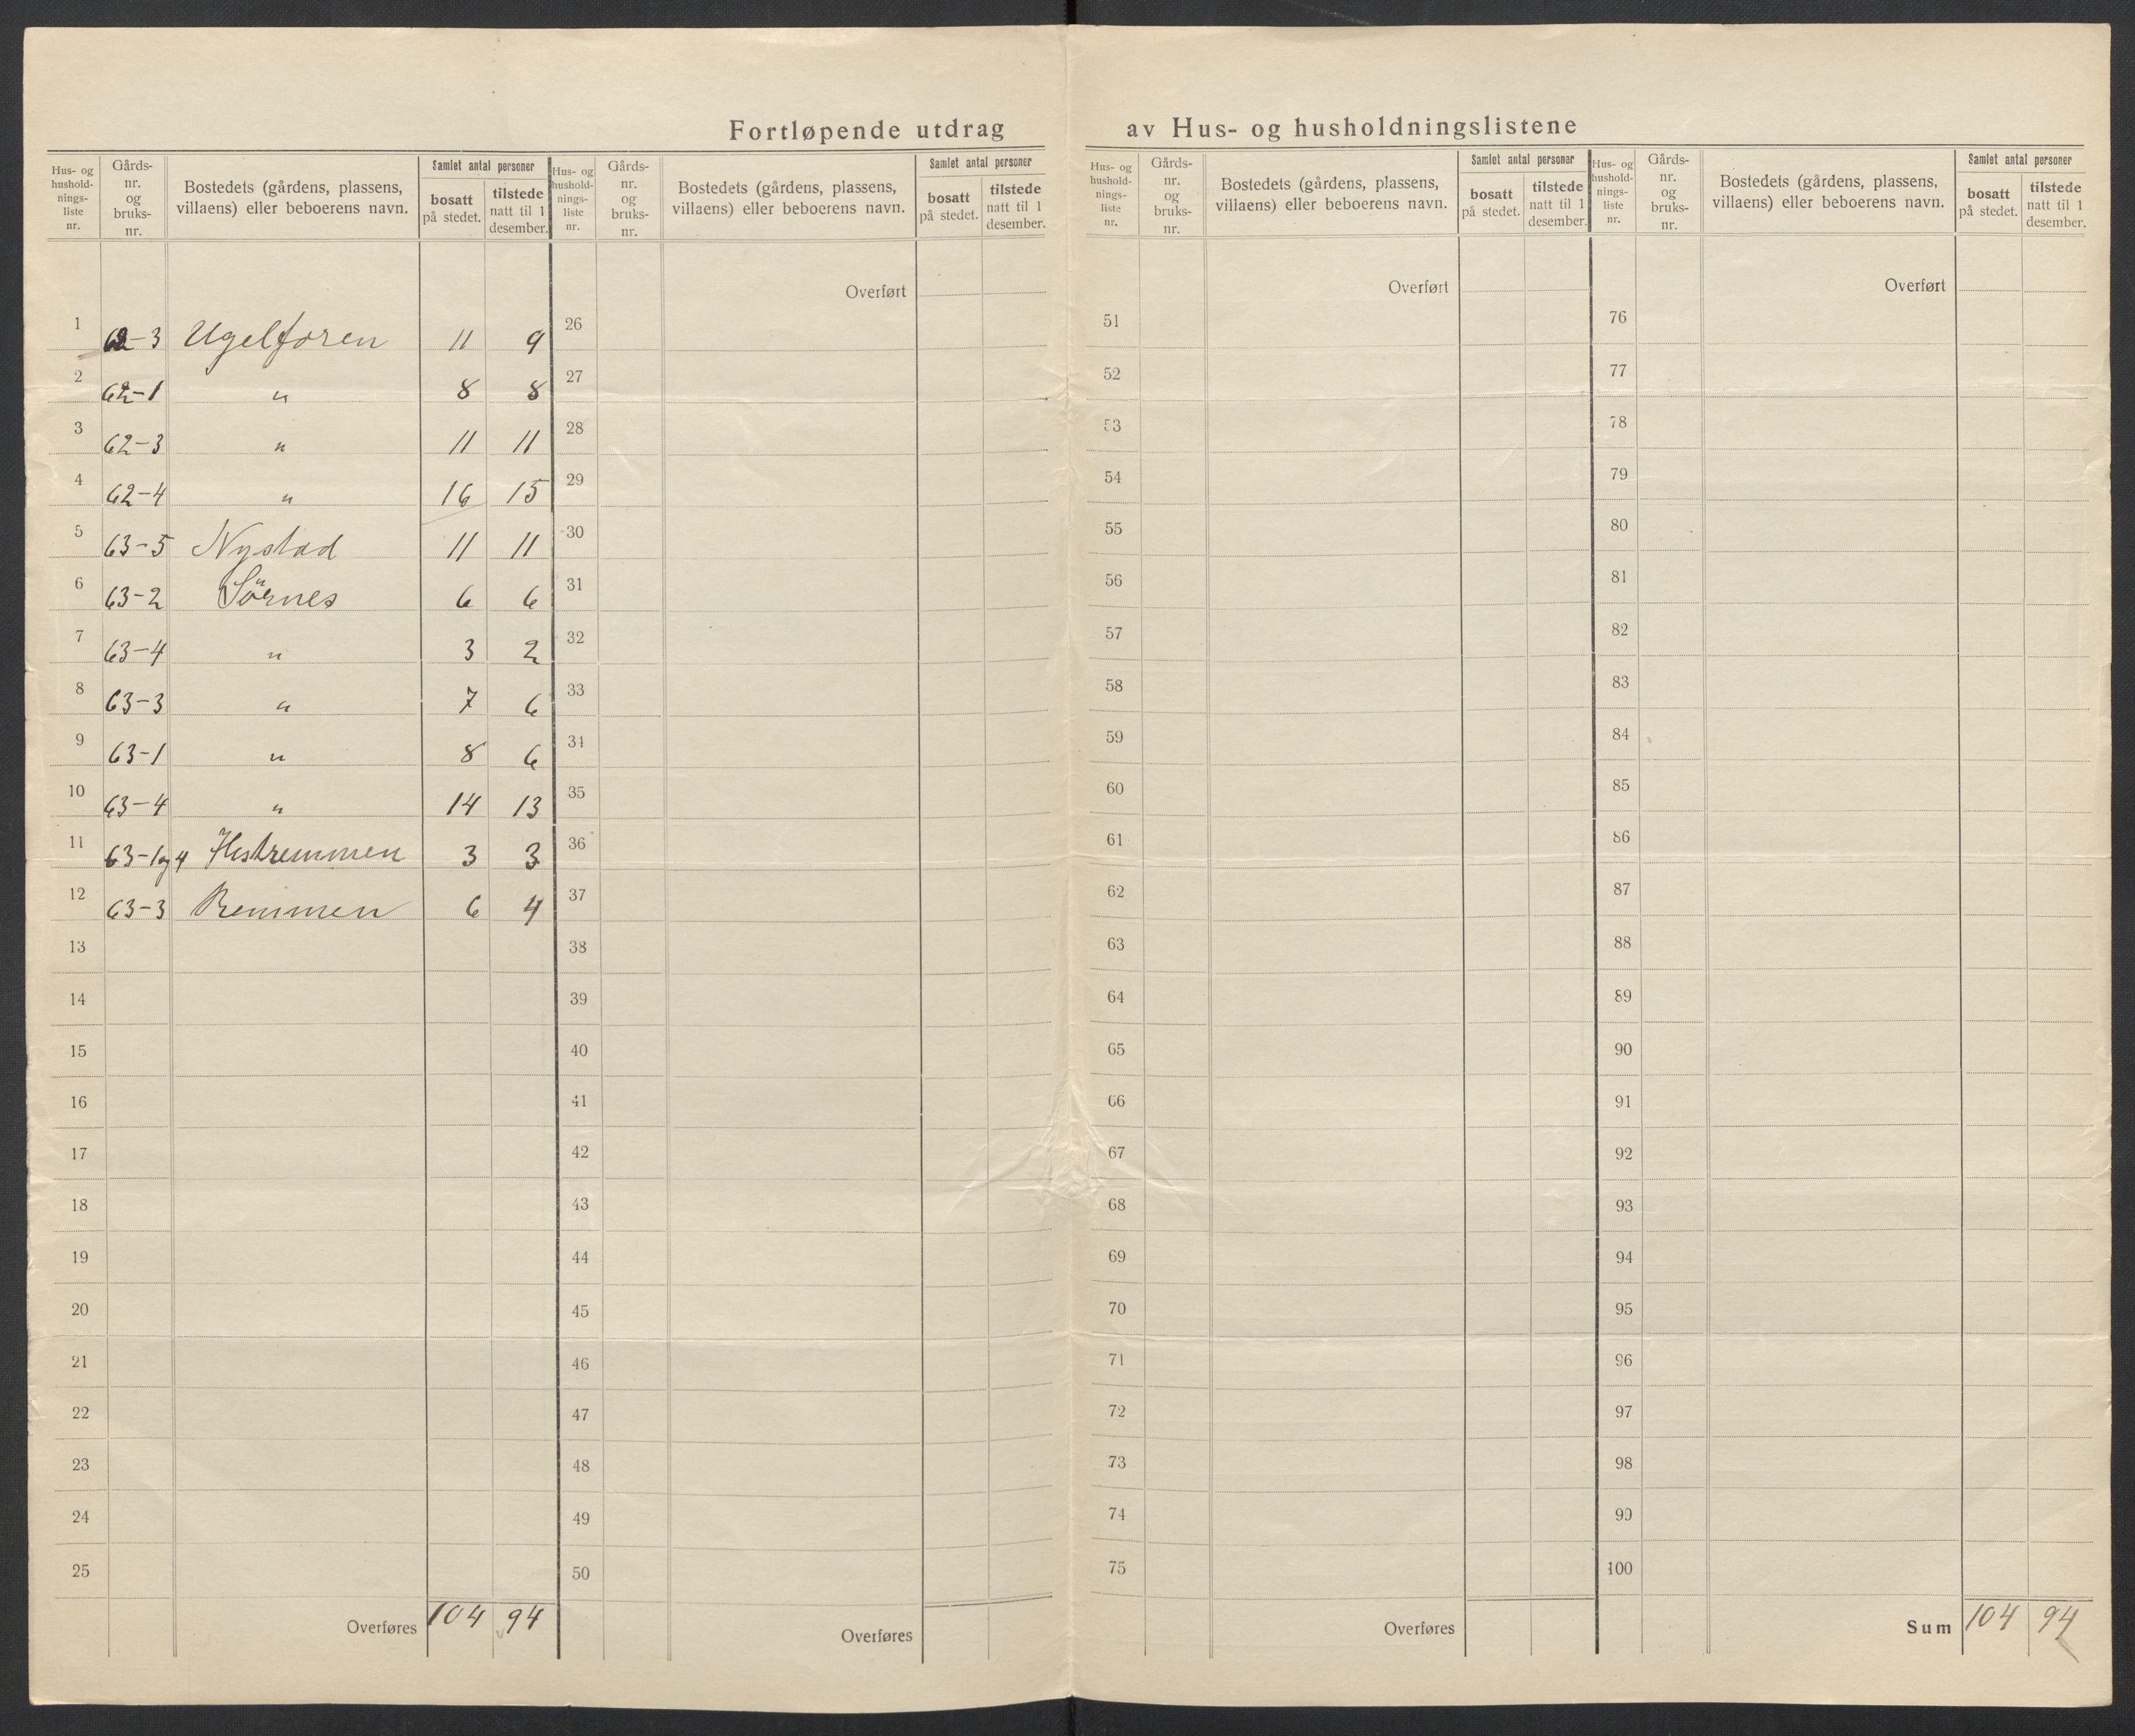 Fortløpende utdrag av Hus- og husholdningslistene
Hus- og hushold-nings-liste nr. Gårds-nr. og bruks-nr. Bostedets (gårdens, plassens, villaens) eller beboerens navn. Samlet antal personer bosatt på stedet. tilstede natt til 1 desember.
1 62-3 Ugelforen 11 9
2 62-1 " 8 8
3 62-3 " 11 11
4 62-4 " 16 15
5 63-5 Nystad 11 11
6 63-2 Sörnes 6 6
7 63-4 " 3 2
8 63-3 " 7 6
9 63-1 " 8 6
10 63-4 " 14 13
11 63-1og4 Hestremmen 3 3
12 63-3 Remmen 6 4
13
14
15
16
17
18
19
20
21
22
23
24
25
Overføres 104 94
Hus- og hushold-nings-liste nr. Gårds-nr. og bruks-nr. Bostedets (gårdens, plassens, villaens) eller beboerens navn. Samlet antal personer bosatt på stedet. tilstede natt til 1 desember.
Overført
26
27
28
29
30
31
32
33
34
35
36
37
38
39
40
41
42
43
44
45
46
47
48
49
50
Overføres
Hus- og hushold-nings-liste nr. Gårds-nr. og bruks-nr. Bostedets (gårdens, plassens, villaens) eller beboerens navn. Samlet antal personer bosatt på stedet. tilstede natt til 1 desember.
Overført
51
52
53
54
55
56
57
58
59
60
61
62
63
64
65
66
67
68
69
70
71
72
73
74
75
Overføres
Hus- og hushold-nings-liste nr. Gårds-nr. og bruks-nr. Bostedets (gårdens, plassens, villaens) eller beboerens navn. Samlet antal personer bosatt på stedet. tilstede natt til 1 desember.
Overført
76
77
78
79
80
81
82
83
84
85
86
87
88
89
90
91
92
93
94
95
96
97
98
99
100
Sum 104 94